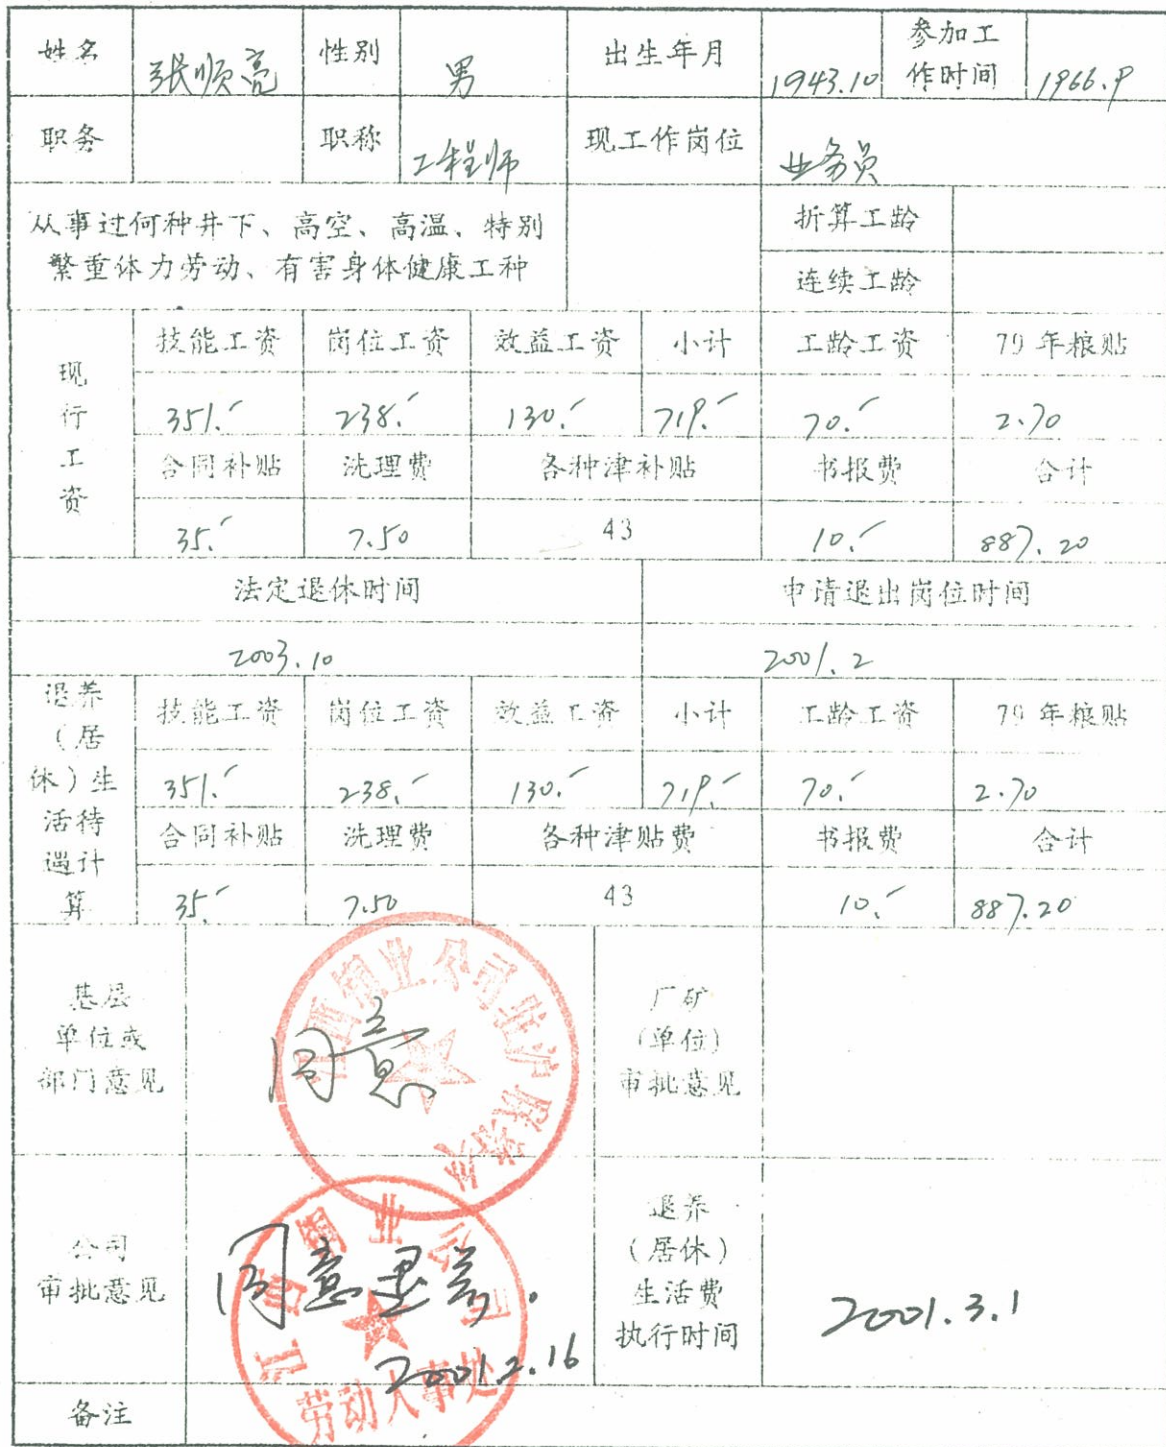 姓名 张顺亮 性别 男 出生年月 1943.10 参加工作时间 1966.9
职务 职称 工程师 现工作岗位 业务员
从事过何种井下、高空、高温、特别 折算工龄
繁重体力劳动、有害身体健康工种 连续工龄
现行工资
技能工资 岗位工资 效益工资 小计 工龄工资 79年粮贴
351.- 238.- 130.- 719.- 70.- 2.70
合同补贴 洗理费 各种津补贴 书报费 合计
35.- 7.50 43 10.- 887.20
法定退休时间 申请退出岗位时间
2003.10 2001.2
退养(居休)生活待遇计算
技能工资 岗位工资 效益工资 小计 工龄工资 79年粮贴
351.- 238.- 130.- 719.- 70.- 2.70
合同补贴 洗理费 各种津贴费 书报费 合计
35.- 7.50 43 10.- 887.20
基层
单位或
部门意见
同意
厂矿
(单位)
审批意见
公司
审批意见
同意退养.
2001.2.16
江西铜业公司
劳动人事处
退养
(居休)
生活费
执行时间
2001.3.1
备注